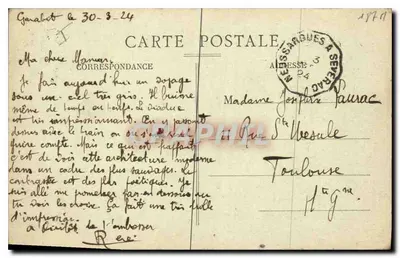 Garabit le 30-3-24
CARTE POSTALE
CORRESPONDANCE
ADRESSE
NEUSSARGUES A SEVERAC
Ma chère Maman,
Je fais aujourd'hui un voyage
sous un ciel très gris. Il bruine
même de temps en temps. Le viaduc
est très impressionnant. En y passant
dessus avec le train on ne s'en rend
guère compte. Mais ce qui est frappant
c'est de voir cette architecture moderne
dans un cadre des plus sauvages. Le
contraste est des plus poétiques. Je
suis allé me promener par en dessous au
tu vois les croix. Ça fait une très belle
d'impression.
A bientôt de t'embrasser
René
Madame Josephe Pauzac
Rue Ste Ursule
Toulouse
Hte Gne